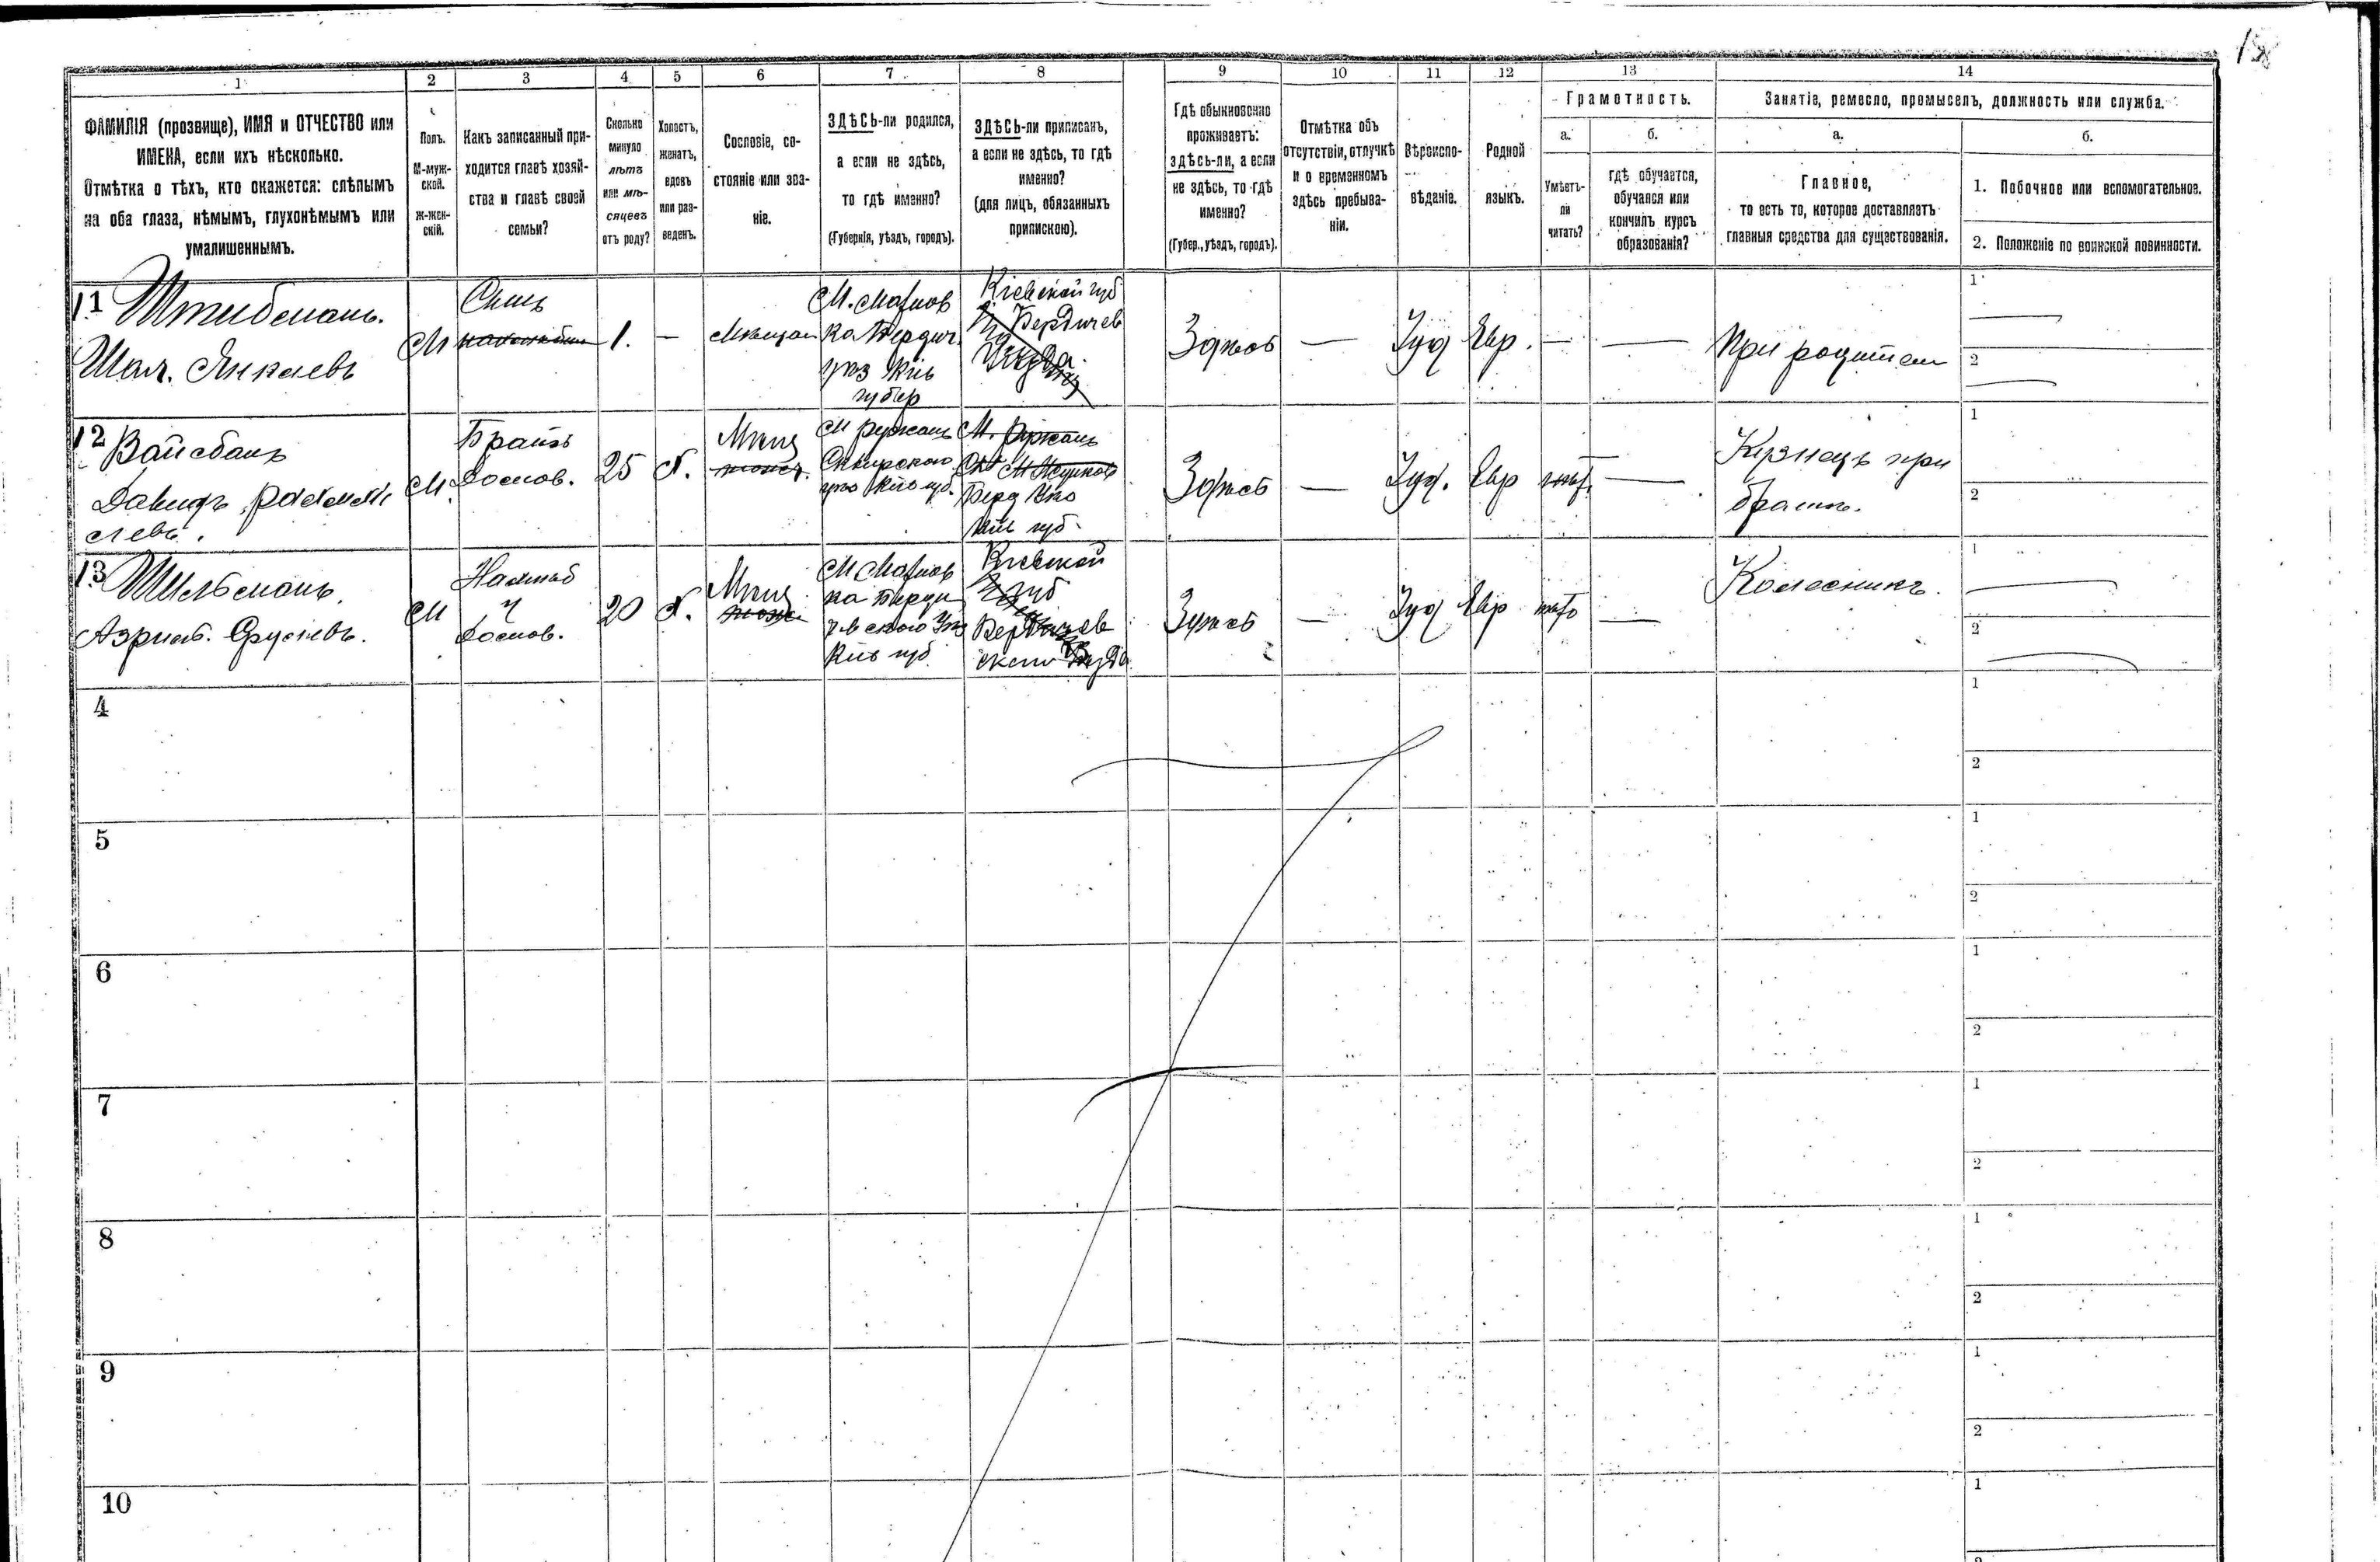 18
1 2 3 4 5 6 7 8 9 10 11 12 13 14
ФАМИЛІЯ (прозвище), ИМЯ и ОТЧЕСТВО или
ИМЕНА, если ихъ нѣсколько.
Отмѣтка о тѣхъ, кто окажется: слѣпымъ
на оба глаза, нѣмымъ, глухонѣмымъ или
умалишеннымъ.
Полъ.
М-муж-
ской.
Ж-жен-
скій.
Какъ записанный при-
ходится главѣ хозяй-
ства и главѣ своей
семьи?
Сколько
минуло
лѣтъ
или мѣ-
сяцевъ
отъ роду?
Холостъ,
женатъ,
вдовъ
или раз-
веденъ.
Сословіе, со-
стояніе или зва-
ніе.
ЗДѢСЬ-ли родился,
а если не здѣсь,
то гдѣ именно?
(Губернія, уѣздъ, городъ).
ЗДѢСЬ-ли приписанъ,
а если не здѣсь, то гдѣ
именно?
(для лицъ, обязанныхъ
припискою).
Гдѣ обыкновенно
проживаетъ:
здѣсь-ли, а если
не здѣсь, то гдѣ
именно?
(Губер., уѣздъ, городъ).
Отмѣтка объ
отсутствіи, отлучкѣ
и о временномъ
здѣсь пребыва-
ніи.
Вѣроиспо-
вѣданіе.
Родной
языкъ.
Грамотность.
а.
Умѣетъ-
ли
читать?
б.
гдѣ обучается,
обучался или
кончилъ курсъ
образованія?
Занятіе, ремесло, промыселъ, должность или служба.
а.
Главное,
то есть то, которое доставляетъ
главныя средства для существованія.
б.
1. Побочное или вспомогательное.
2. Положеніе по воинской повинности.
11 Штибманъ.
Шал. Янкелевъ
М
Сынъ
1.
—
Мѣщан
М. Махнов
ка Бердич.
уѣз Кіев
губер
Кіевской губ
Бердичев
Уѣзда
—
Іуд
Евр.
—
—
При родител
1
2
12 Вайсбанъ
Давидъ
М.
Братъ
хозяев.
25
Х.
Мѣщ
М Ружинъ
Сквирского
уѣз Кіев губ.
М. Ружинъ
Берд
Кіев губ.
—
Іуд.
Евр
—
Кузнецъ при
братѣ.
1
2
13 Шильманъ.
М
хозяев.
20
Х.
Мѣщ
М Махнов
ка Берди
чевского Уѣз
Кіев губ
Кіевской
губ
Бердичев
ского Уѣзда
—
Іуд
Евр
—
Колесникъ.
1
2
4
1
2
5
1
2
6
1
2
7
1
2
8
1
2
9
1
2
10
1
2